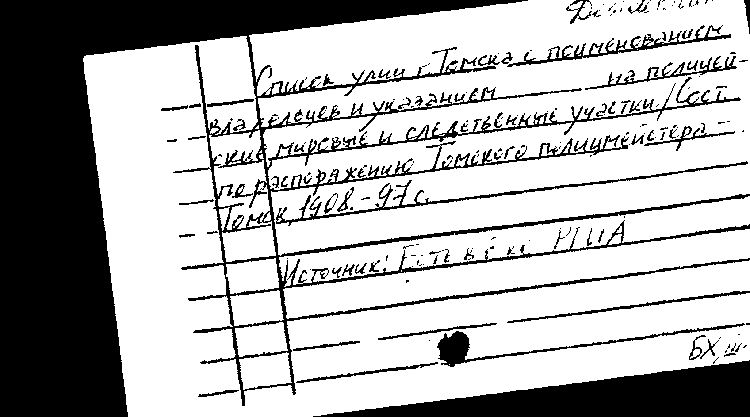 Список улиц г. Томска с поименованием
владельцев и указанием на полицей-
ские, мировые и следственные участки / Сост.
по распоряжению Томского полицмейстера. –
Томск, 1908. – 97 с.
Источник: Есть в РГИА
БХ, ш.